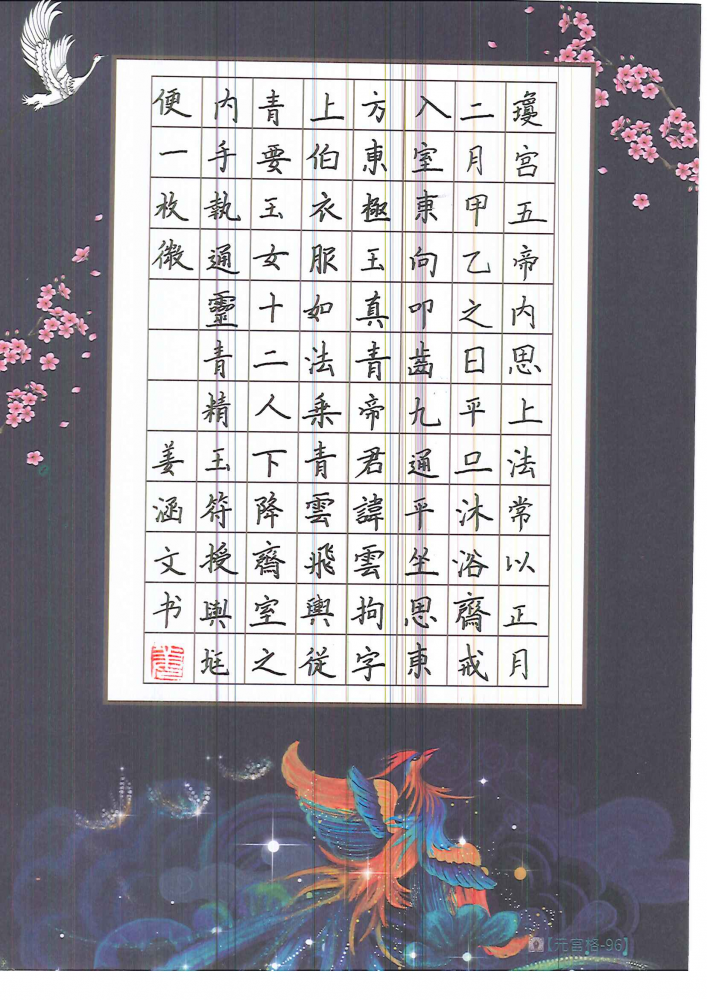 瓊宮五帝內思上法常以正月
二月甲乙之日平旦沐浴齋戒
入室東向叩齒九通平坐思東
方東極玉真青帝君諱雲拘字
上伯衣服如法乘青雲飛輿從
青要玉女十二人下降齋室之
內手執通靈青精玉符授與尪
便一枚微
姜涵文书
【元宫格-96】